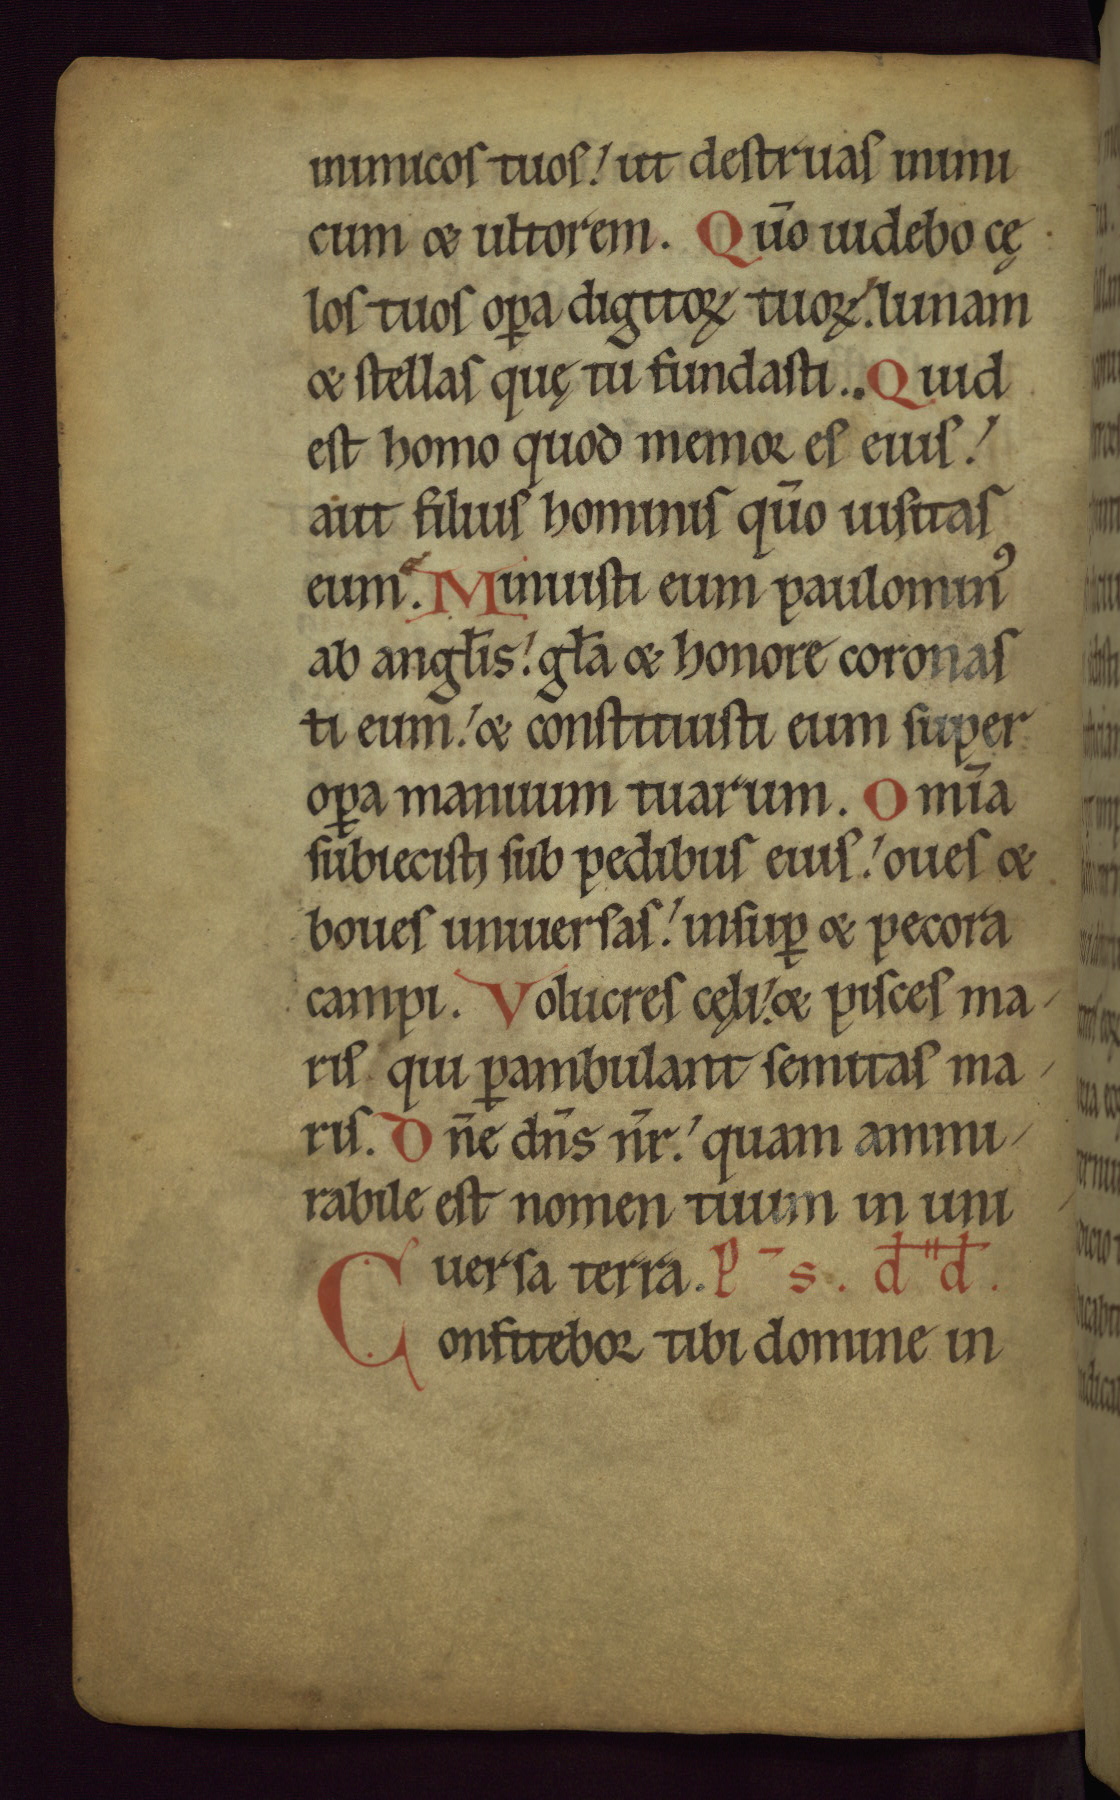 inimicos tuos! ut destruas inimi
cum & ultorem. Qūo uidebo cę
los tuos oꝑa digitoꝝ tuoꝝ! lunam
& stellas quę tu fundasti.. Quid
est homo quod memor es eius!
aut filius hominis qūo uisitas
eum. Minuisti eum paulominꝰ
ab angl̄is! gl̄a & honore corona
ti eum! & constituisti eum super
oꝑa manuum tuarum. Om̄ia
subiecisti sub pedibus eius! oues &
boues uniuersas! insuꝑ & pecora
campi. Volucres cęli! & pisces ma-
ris qui ꝑambulant semitas ma-
ris. Dn̄e dn̄s n̄r! quam ammi-
rabile est nomen tuum in uni
uersa terra. P̄s. dd.
Confitebor tibi domine in